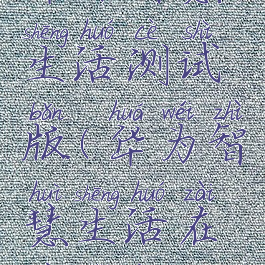 shēng huó cè shì
生活测试
bǎn huá wéi zhì
版(华为智
huì shēng huó zài
慧生活在